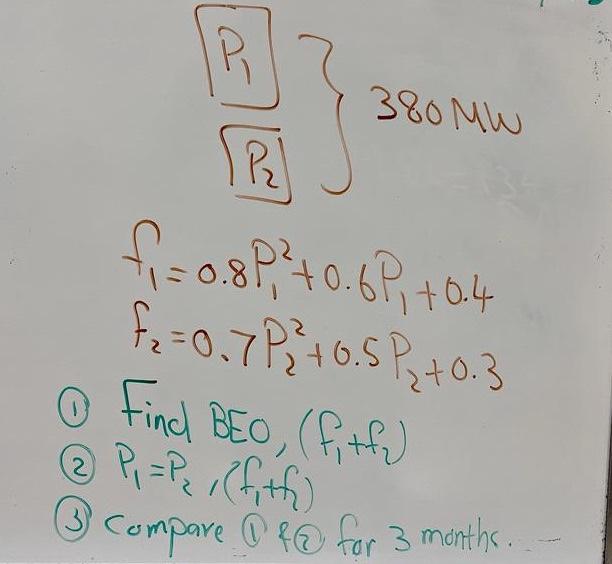 P₁
380 MW
P₂
f₁ = 0.8P₁² + 0.6P₁ + 0.4
f₂ = 0.7P₂² + 0.5P₂ + 0.3
① Find BEO, (f₁+f₂)
② P₁ = P₂, (f₁+f₂)
③ Compare ① & ② for 3 months.